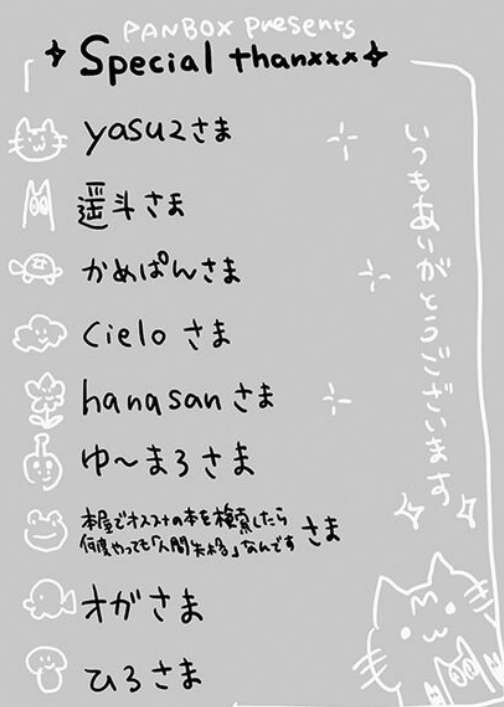 PANBOX presents
Special thanxxx
yasu2さま
遥斗さま
かめぱんさま
Cieloさま
hanasanさま
ゆ〜まろさま
本屋でオススメの本を検索したら
何度やっても「人間失格」なんですさま
オガさま
ひろさま
いつもありがとうございます